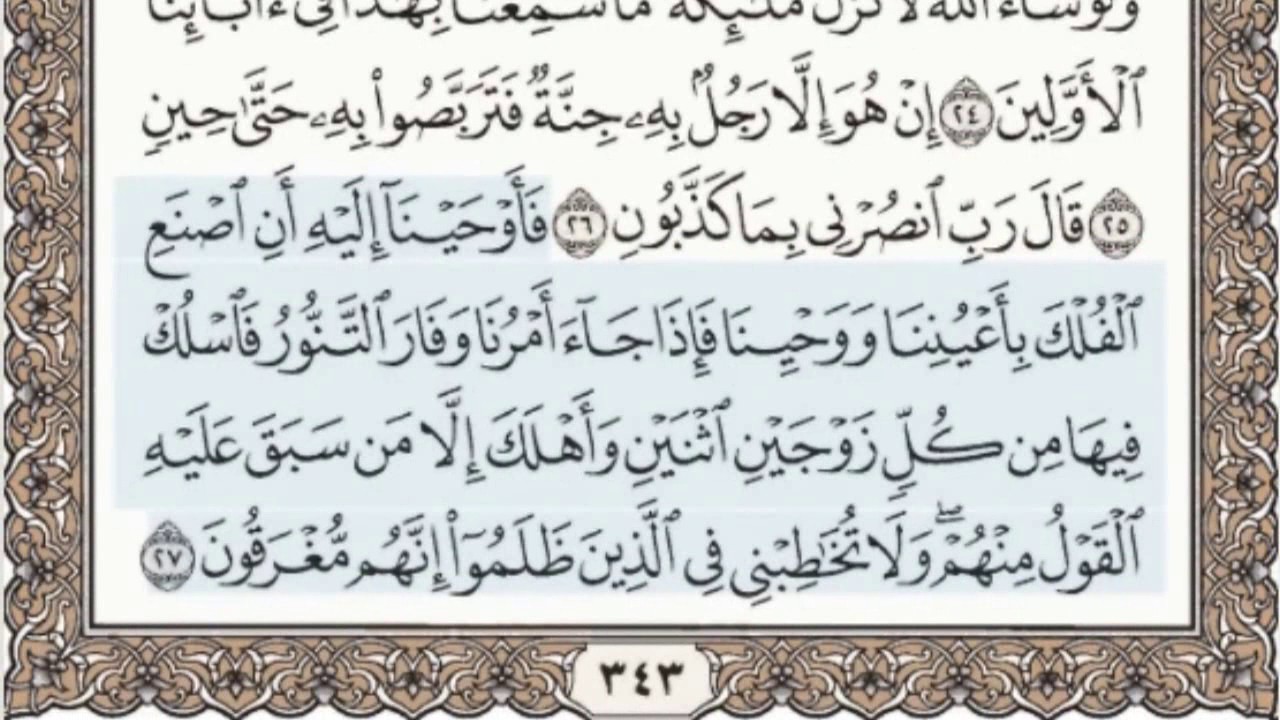 وَلَوْ شَآءَ ٱللَّهُ لَأَنزَلَ مَلَٰٓئِكَةً مَّا سَمِعْنَا بِهَٰذَا فِىٓ ءَابَآئِنَا
ٱلْأَوَّلِينَ ٢٤ إِنْ هُوَ إِلَّا رَجُلٌۢ بِهِۦ جِنَّةٌ فَتَرَبَّصُوا۟ بِهِۦ حَتَّىٰ حِينٍ
٢٥ قَالَ رَبِّ ٱنصُرْنِى بِمَا كَذَّبُونِ ٢٦ فَأَوْحَيْنَآ إِلَيْهِ أَنِ ٱصْنَعِ
ٱلْفُلْكَ بِأَعْيُنِنَا وَوَحْيِنَا فَإِذَا جَآءَ أَمْرُنَا وَفَارَ ٱلتَّنُّورُ فَٱسْلُكْ
فِيهَا مِن كُلٍّ زَوْجَيْنِ ٱثْنَيْنِ وَأَهْلَكَ إِلَّا مَن سَبَقَ عَلَيْهِ
ٱلْقَوْلُ مِنْهُمْ ۖ وَلَا تُخَٰطِبْنِى فِى ٱلَّذِينَ ظَلَمُوٓا۟ إِنَّهُم مُّغْرَقُونَ ٢٧
٣٤٣